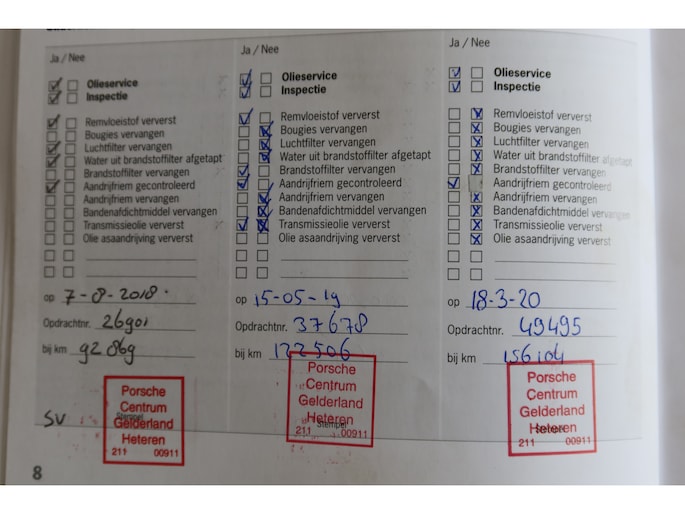 Ja / Nee
Olieservice
Inspectie
Remvloeistof ververst
Bougies vervangen
Luchtfilter vervangen
Water uit brandstoffilter afgetapt
Brandstoffilter vervangen
Aandrijfriem gecontroleerd
Aandrijfriem vervangen
Bandenafdichtmiddel vervangen
Transmissieolie ververst
Olie asaandrijving ververst
op 7-8-2018.
Opdrachtnr. 26901
bij km 92 869
SV
Porsche
Centrum
Gelderland
Stempel
Heteren
211 00911
Ja / Nee
Olieservice
Inspectie
Remvloeistof ververst
Bougies vervangen
Luchtfilter vervangen
Water uit brandstoffilter afgetapt
Brandstoffilter vervangen
Aandrijfriem gecontroleerd
Aandrijfriem vervangen
Bandenafdichtmiddel vervangen
Transmissieolie ververst
Olie asaandrijving ververst
op 15-05-19
Opdrachtnr. 37678
bij km 122506
Porsche
Centrum
Gelderland
Heteren
Stempel
211 00911
Ja / Nee
Olieservice
Inspectie
Remvloeistof ververst
Bougies vervangen
Luchtfilter vervangen
Water uit brandstoffilter afgetapt
Brandstoffilter vervangen
Aandrijfriem gecontroleerd
Aandrijfriem vervangen
Bandenafdichtmiddel vervangen
Transmissieolie ververst
Olie asaandrijving ververst
op 18-3-20
Opdrachtnr. 49495
bij km 156104
Porsche
Centrum
Gelderland
Heteren
Stempel
211 00911
8